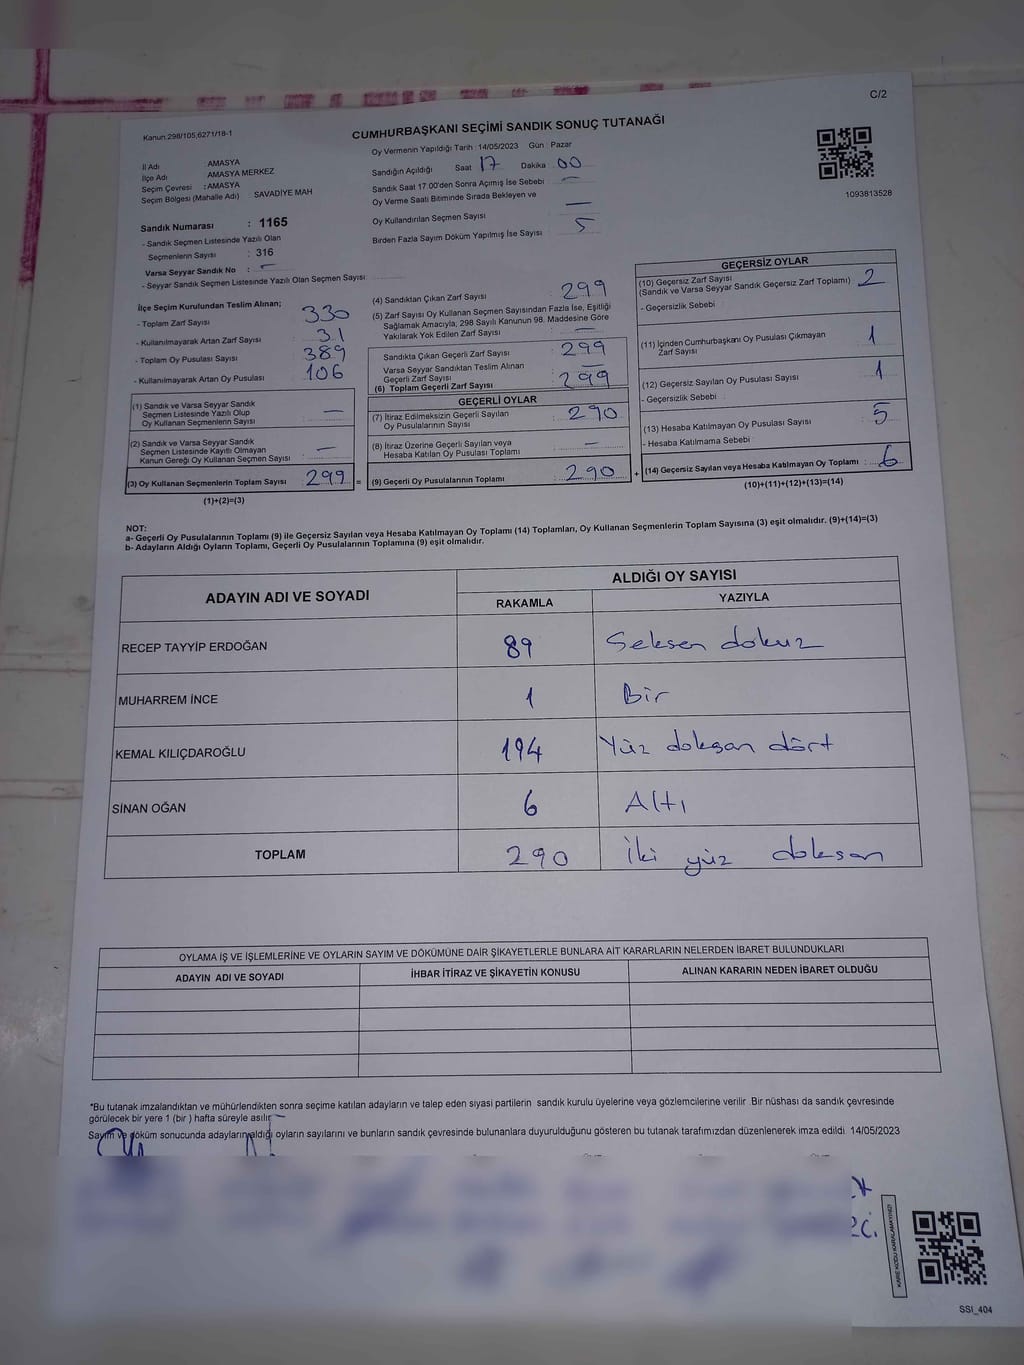 C/2
Kanun.298/105,6271/18-1
CUMHURBAŞKANI SEÇİMİ SANDIK SONUÇ TUTANAĞI
Oy Vermenin Yapıldığı Tarih : 14/05/2023 Gün : Pazar
İl Adı AMASYA
İlçe Adı AMASYA MERKEZ
Seçim Çevresi : AMASYA
Seçim Bölgesi (Mahalle Adı) SAVADİYE MAH
Sandık Numarası : 1165
- Sandık Seçmen Listesinde Yazılı Olan
Seçmenlerin Sayısı : 316
Varsa Seyyar Sandık No : –
- Seyyar Sandık Seçmen Listesinde Yazılı Olan Seçmen Sayısı
Sandığın Açıldığı Saat 17 Dakika 00
Sandık Saat 17.00'den Sonra Açımış İse Sebebi –
Oy Verme Saati Bitiminde Sırada Bekleyen ve
Oy Kullandırılan Seçmen Sayısı –
Birden Fazla Sayım Döküm Yapılmış İse Sayısı 5
1093813528
İlçe Seçim Kurulundan Teslim Alınan;
- Toplam Zarf Sayısı : 330
- Kullanılmayarak Artan Zarf Sayısı : 31
- Toplam Oy Pusulası Sayısı : 389
- Kullanılmayarak Artan Oy Pusulası : 106
(1) Sandık ve Varsa Seyyar Sandık
Seçmen Listesinde Yazılı Olup
Oy Kullanan Seçmenlerin Sayısı : –
(2) Sandık ve Varsa Seyyar Sandık
Seçmen Listesinde Kayıtlı Olmayan
Kanun Gereği Oy Kullanan Seçmen Sayısı : –
(3) Oy Kullanan Seçmenlerin Toplam Sayısı : 299 =
(1)+(2)=(3)
(4) Sandıktan Çıkan Zarf Sayısı : 299
(5) Zarf Sayısı Oy Kullanan Seçmen Sayısından Fazla İse, Eşitliği
Sağlamak Amacıyla, 298 Sayılı Kanunun 98. Maddesine Göre
Yakılarak Yok Edilen Zarf Sayısı : –
Sandıkta Çıkan Geçerli Zarf Sayısı : 299
Varsa Seyyar Sandıktan Teslim Alınan
Geçerli Zarf Sayısı : –
(6) Toplam Geçerli Zarf Sayısı : 299
GEÇERLİ OYLAR
(7) İtiraz Edilmeksizin Geçerli Sayılan
Oy Pusulalarının Sayısı : 290
(8) İtiraz Üzerine Geçerli Sayılan veya
Hesaba Katılan Oy Pusulası Toplamı : –
(9) Geçerli Oy Pusulalarının Toplamı : 290 +
GEÇERSİZ OYLAR
(10) Geçersiz Zarf Sayısı : 2
(Sandık ve Varsa Seyyar Sandık Geçersiz Zarf Toplamı)
- Geçersizlik Sebebi :
(11) İçinden Cumhurbaşkanı Oy Pusulası Çıkmayan
Zarf Sayısı : 1
(12) Geçersiz Sayılan Oy Pusulası Sayısı : 1
- Geçersizlik Sebebi :
(13) Hesaba Katılmayan Oy Pusulası Sayısı : 5
- Hesaba Katılmama Sebebi :
(14) Geçersiz Sayılan veya Hesaba Katılmayan Oy Toplamı : 6
(10)+(11)+(12)+(13)=(14)
NOT:
a- Geçerli Oy Pusulalarının Toplamı (9) ile Geçersiz Sayılan veya Hesaba Katılmayan Oy Toplamı (14) Toplamları, Oy Kullanan Seçmenlerin Toplam Sayısına (3) eşit olmalıdır. (9)+(14)=(3)
b- Adayların Aldığı Oyların Toplamı, Geçerli Oy Pusulalarının Toplamına (9) eşit olmalıdır.
ADAYIN ADI VE SOYADI ALDIĞI OY SAYISI
RAKAMLA YAZIYLA
RECEP TAYYİP ERDOĞAN 89 Seksen dokuz
MUHARREM İNCE 1 Bir
KEMAL KILIÇDAROĞLU 194 Yüz doksan dört
SİNAN OĞAN 6 Altı
TOPLAM 290 İki yüz doksan
OYLAMA İŞ VE İŞLEMLERİNE VE OYLARIN SAYIM VE DÖKÜMÜNE DAİR ŞİKAYETLERLE BUNLARA AİT KARARLARIN NELERDEN İBARET BULUNDUKLARI
ADAYIN ADI VE SOYADI İHBAR İTİRAZ VE ŞİKAYETİN KONUSU ALINAN KARARIN NEDEN İBARET OLDUĞU
*Bu tutanak imzalandıktan ve mühürlendikten sonra seçime katılan adayların ve talep eden siyasi partilerin sandık kurulu üyelerine veya gözlemcilerine verilir .Bir nüshası da sandık çevresinde
görülecek bir yere 1 (bir ) hafta süreyle asılır
Sayım ve döküm sonucunda adayların aldığı oyların sayılarını ve bunların sandık çevresinde bulunanlara duyurulduğunu gösteren bu tutanak tarafımızdan düzenlenerek imza edildi. 14/05/2023
KARE KODU KARALAMAYINIZ!
SSI_404